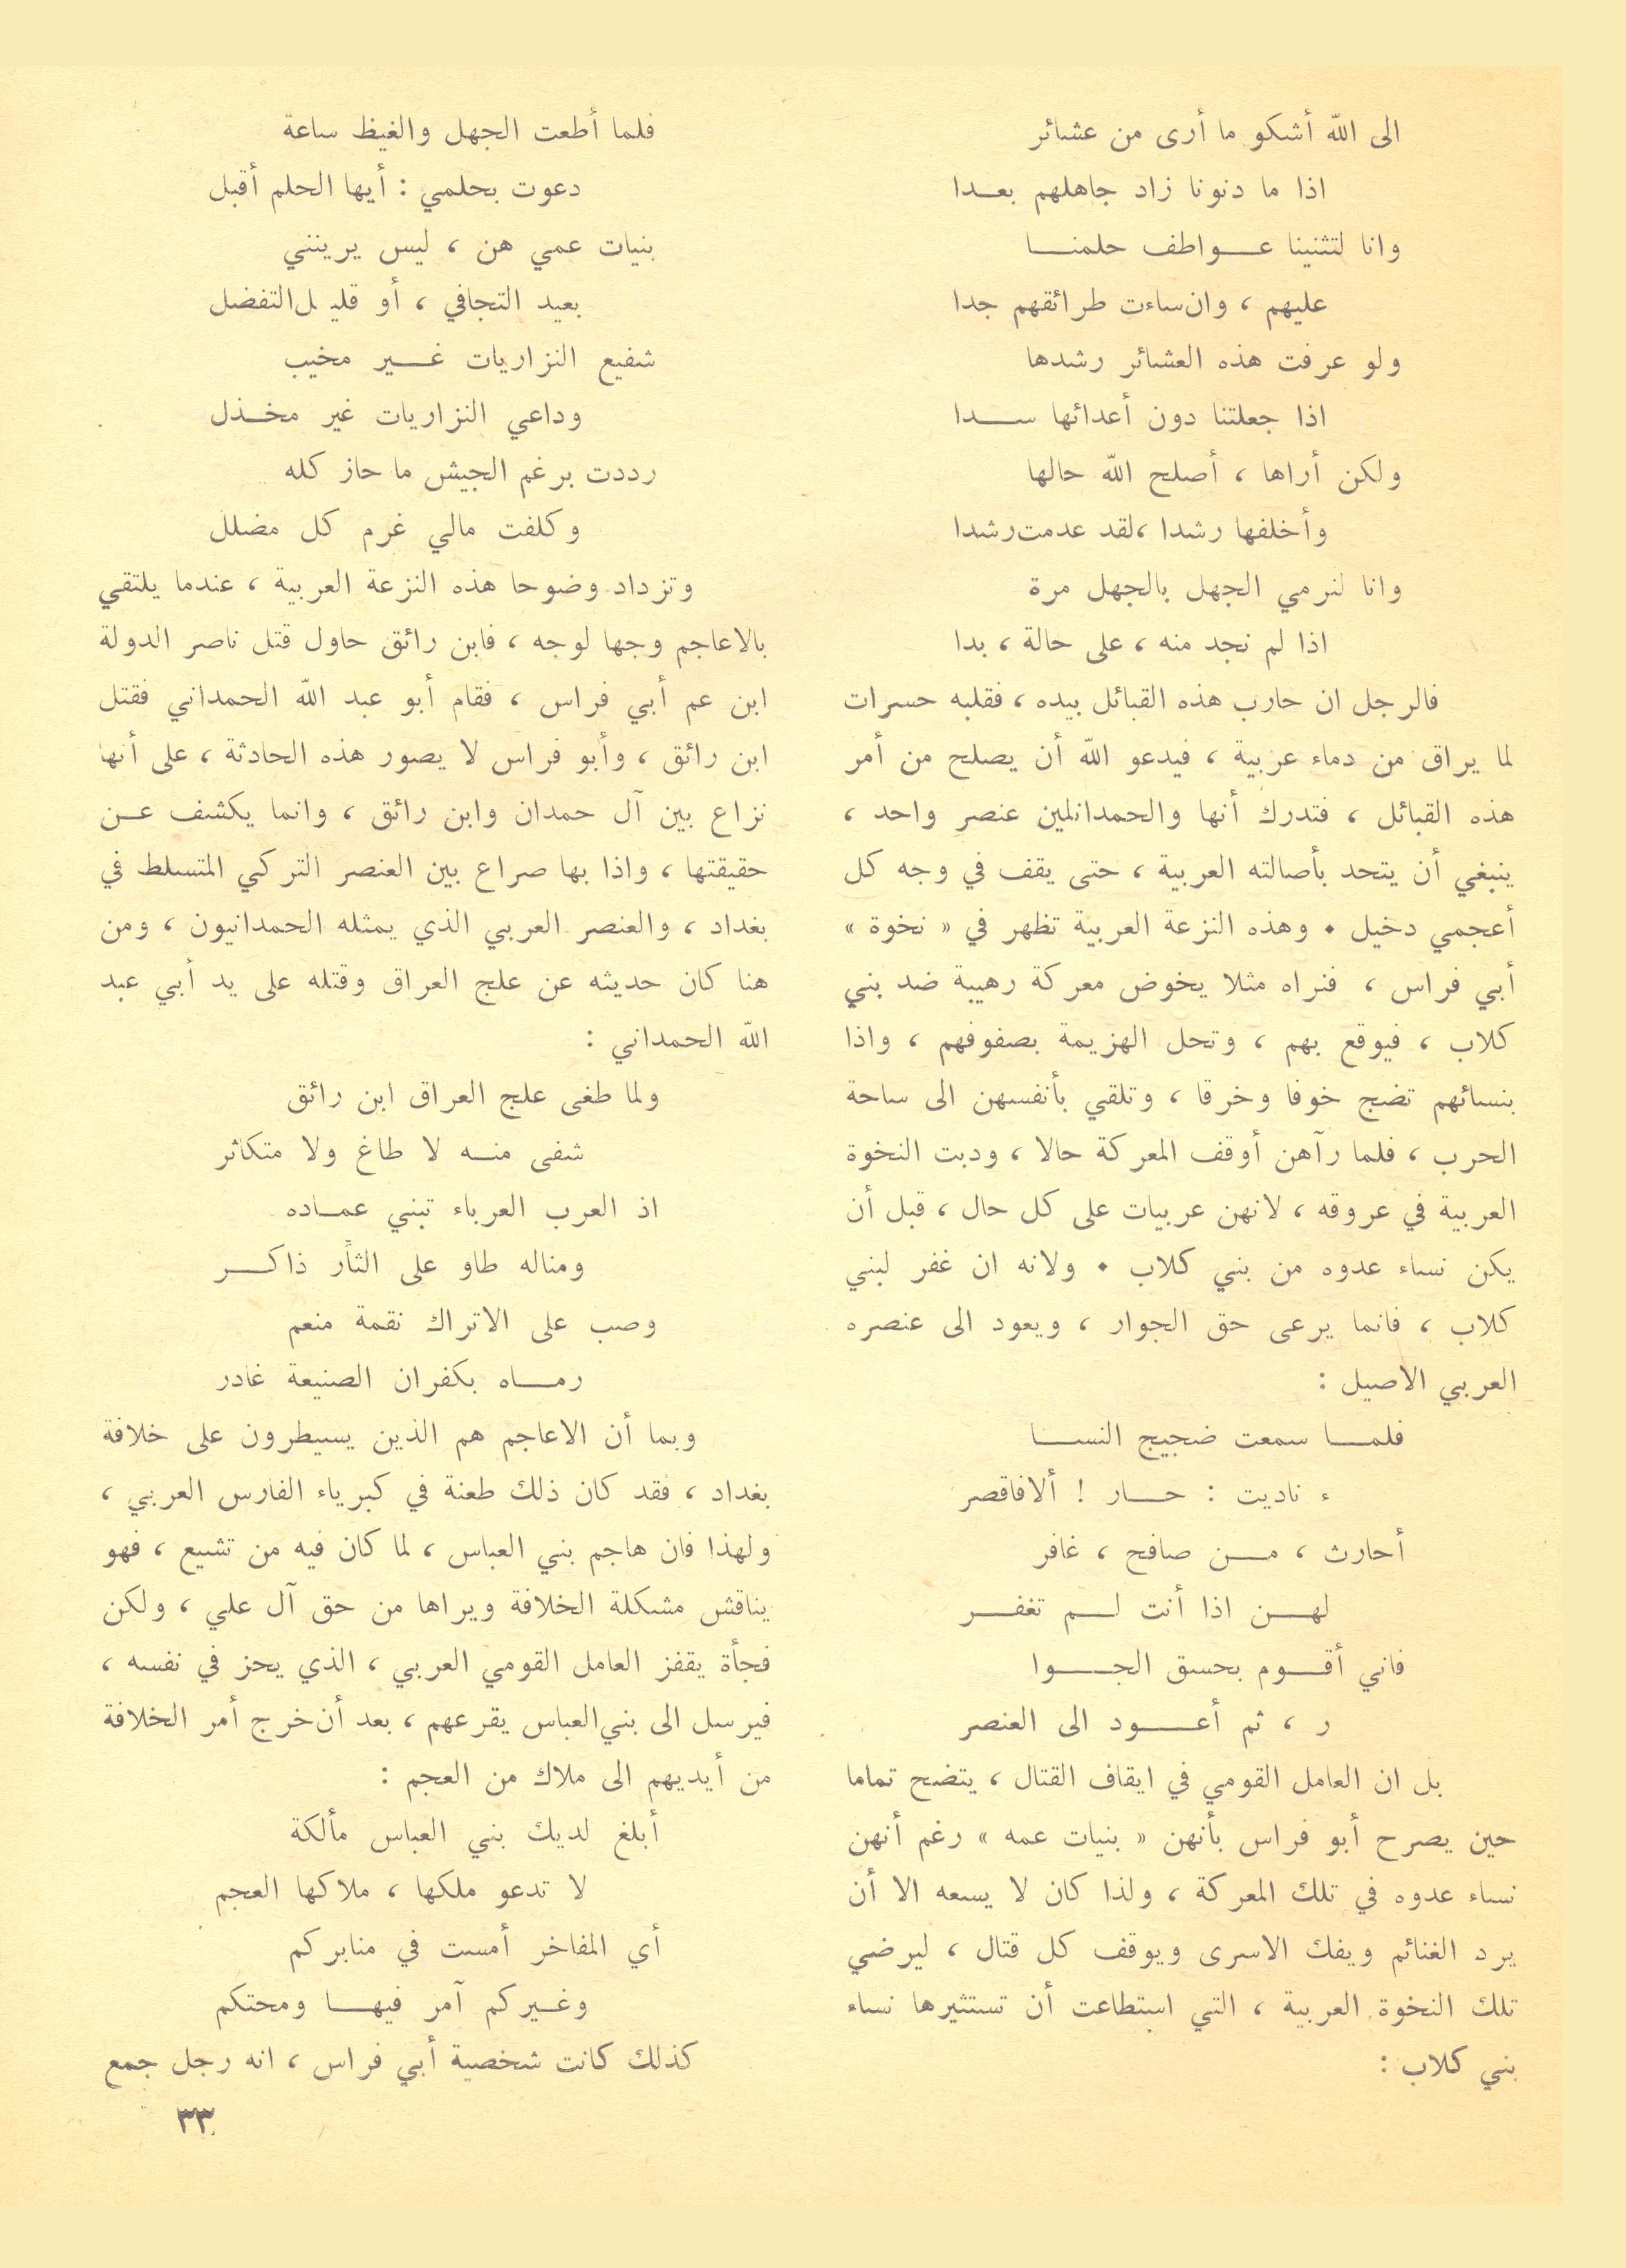 الى الله أشكو ما أرى من عشائر
اذا ما دنونا زاد جاهلهم بعدا
وانا لتثنينا عواطف حلمنا
عليهم ، وان ساءت طرائقهم جدا
ولو عرفت هذه العشائر رشدها
اذا جعلتنا دون أعدائها سدا
ولكن أراها ، أصلح الله حالها
وأخلفها رشدا ، لقد عدمت رشدا
وانا لنرمي الجهل بالجهل مرة
اذا لم نجد منه ، على حالة ، بدا
فالرجل ان حارب هذه القبائل بيده ، فقلبه حسرات
لما يراق من دماء عربية ، فيدعو الله أن يصلح من أمر
هذه القبائل ، فتدرك أنها والحمدانلمين عنصر واحد ،
ينبغي أن يتحد بأصالته العربية ، حتى يقف في وجه كل
أعجمي دخيل • وهذه النزعة العربية تظهر في « نخوة »
أبي فراس ، فنراه مثلا يخوض معركة رهيبة ضد بني
كلاب ، فيوقع بهم ، وتحل الهزيمة بصفوفهم ، واذا
بنسائهم تضج خوفا وخرقا ، وتلقي بأنفسهن الى ساحة
الحرب ، فلما رآهن أوقف المعركة حالا ، ودبت النخوة
العربية في عروقه ، لانهن عربيات على كل حال ، قبل أن
يكن نساء عدوه من بني كلاب • ولانه ان غفر لبني
كلاب ، فانما يرعى حق الجوار ، ويعود الى عنصره
العربي الاصيل :
فلما سمعت ضجيج النسا
ء ناديت : حار ! ألافاقصر
أحارث ، من صافح ، غافر
لهن اذا أنت لم تغفر
فاني أقوم بحسق الجوا
ر ، ثم أعود الى العنصر
بل ان العامل القومي في ايقاف القتال ، يتضح تماما
حين يصرح أبو فراس بأنهن « بنيات عمه » رغم أنهن
نساء عدوه في تلك المعركة ، ولذا كان لا يسعه الا أن
يرد الغنائم ويفك الاسرى ويوقف كل قتال ، ليرضي
تلك النخوة العربية ، التي استطاعت أن تستثيرها نساء
بني كلاب :
فلما أطعت الجهل والغيظ ساعة
دعوت بحلمي : أيها الحلم أقبل
بنيات عمي هن ، ليس يرينني
بعيد التجافي ، أو قليل التفضل
شفيع النزاريات غير مخيب
وداعي النزاريات غير مخذل
رددت برغم الجيش ما حاز كله
وكلفت مالي غرم كل مضلل
وتزداد وضوحا هذه النزعة العربية ، عندما يلتقي
بالاعاجم وجها لوجه ، فابن رائق حاول قتل ناصر الدولة
ابن عم أبي فراس ، فقام أبو عبد الله الحمداني فقتل
ابن رائق ، وأبو فراس لا يصور هذه الحادثة ، على أنها
نزاع بين آل حمدان وابن رائق ، وانما يكشف عن
حقيقتها ، واذا بها صراع بين العنصر التركي المتسلط في
بغداد ، والعنصر العربي الذي يمثله الحمدانيون ، ومن
هنا كان حديثه عن علج العراق وقتله على يد أبي عبد
الله الحمداني :
ولما طغى علج العراق ابن رائق
شفى منه لا طاغ ولا متكاثر
اذ العرب العرباء تبني عماده
ومناله طاو على الثأر ذاكر
وصب على الاتراك نقمة منعم
رماه بكفران الصنيعة غادر
وبما أن الاعاجم هم الذين يسيطرون على خلافة
بغداد ، فقد كان ذلك طعنة في كبرياء الفارس العربي ،
ولهذا فان هاجم بني العباس ، لما كان فيه من تشيع ، فهو
يناقش مشكلة الخلافة ويراها من حق آل علي ، ولكن
فجأة يقفز العامل القومي العربي ، الذي يحز في نفسه ،
فيرسل الى بني العباس يقرعهم ، بعد أن خرج أمر الخلافة
من أيديهم الى ملاك من العجم :
أبلغ لديك بني العباس مألكة
لا تدعو ملكها ، ملاكها العجم
أي المفاخر أمست في منابركم
وغيركم آمر فيها ومحتكم
كذلك كانت شخصية أبي فراس ، انه رجل جمع
٣٣